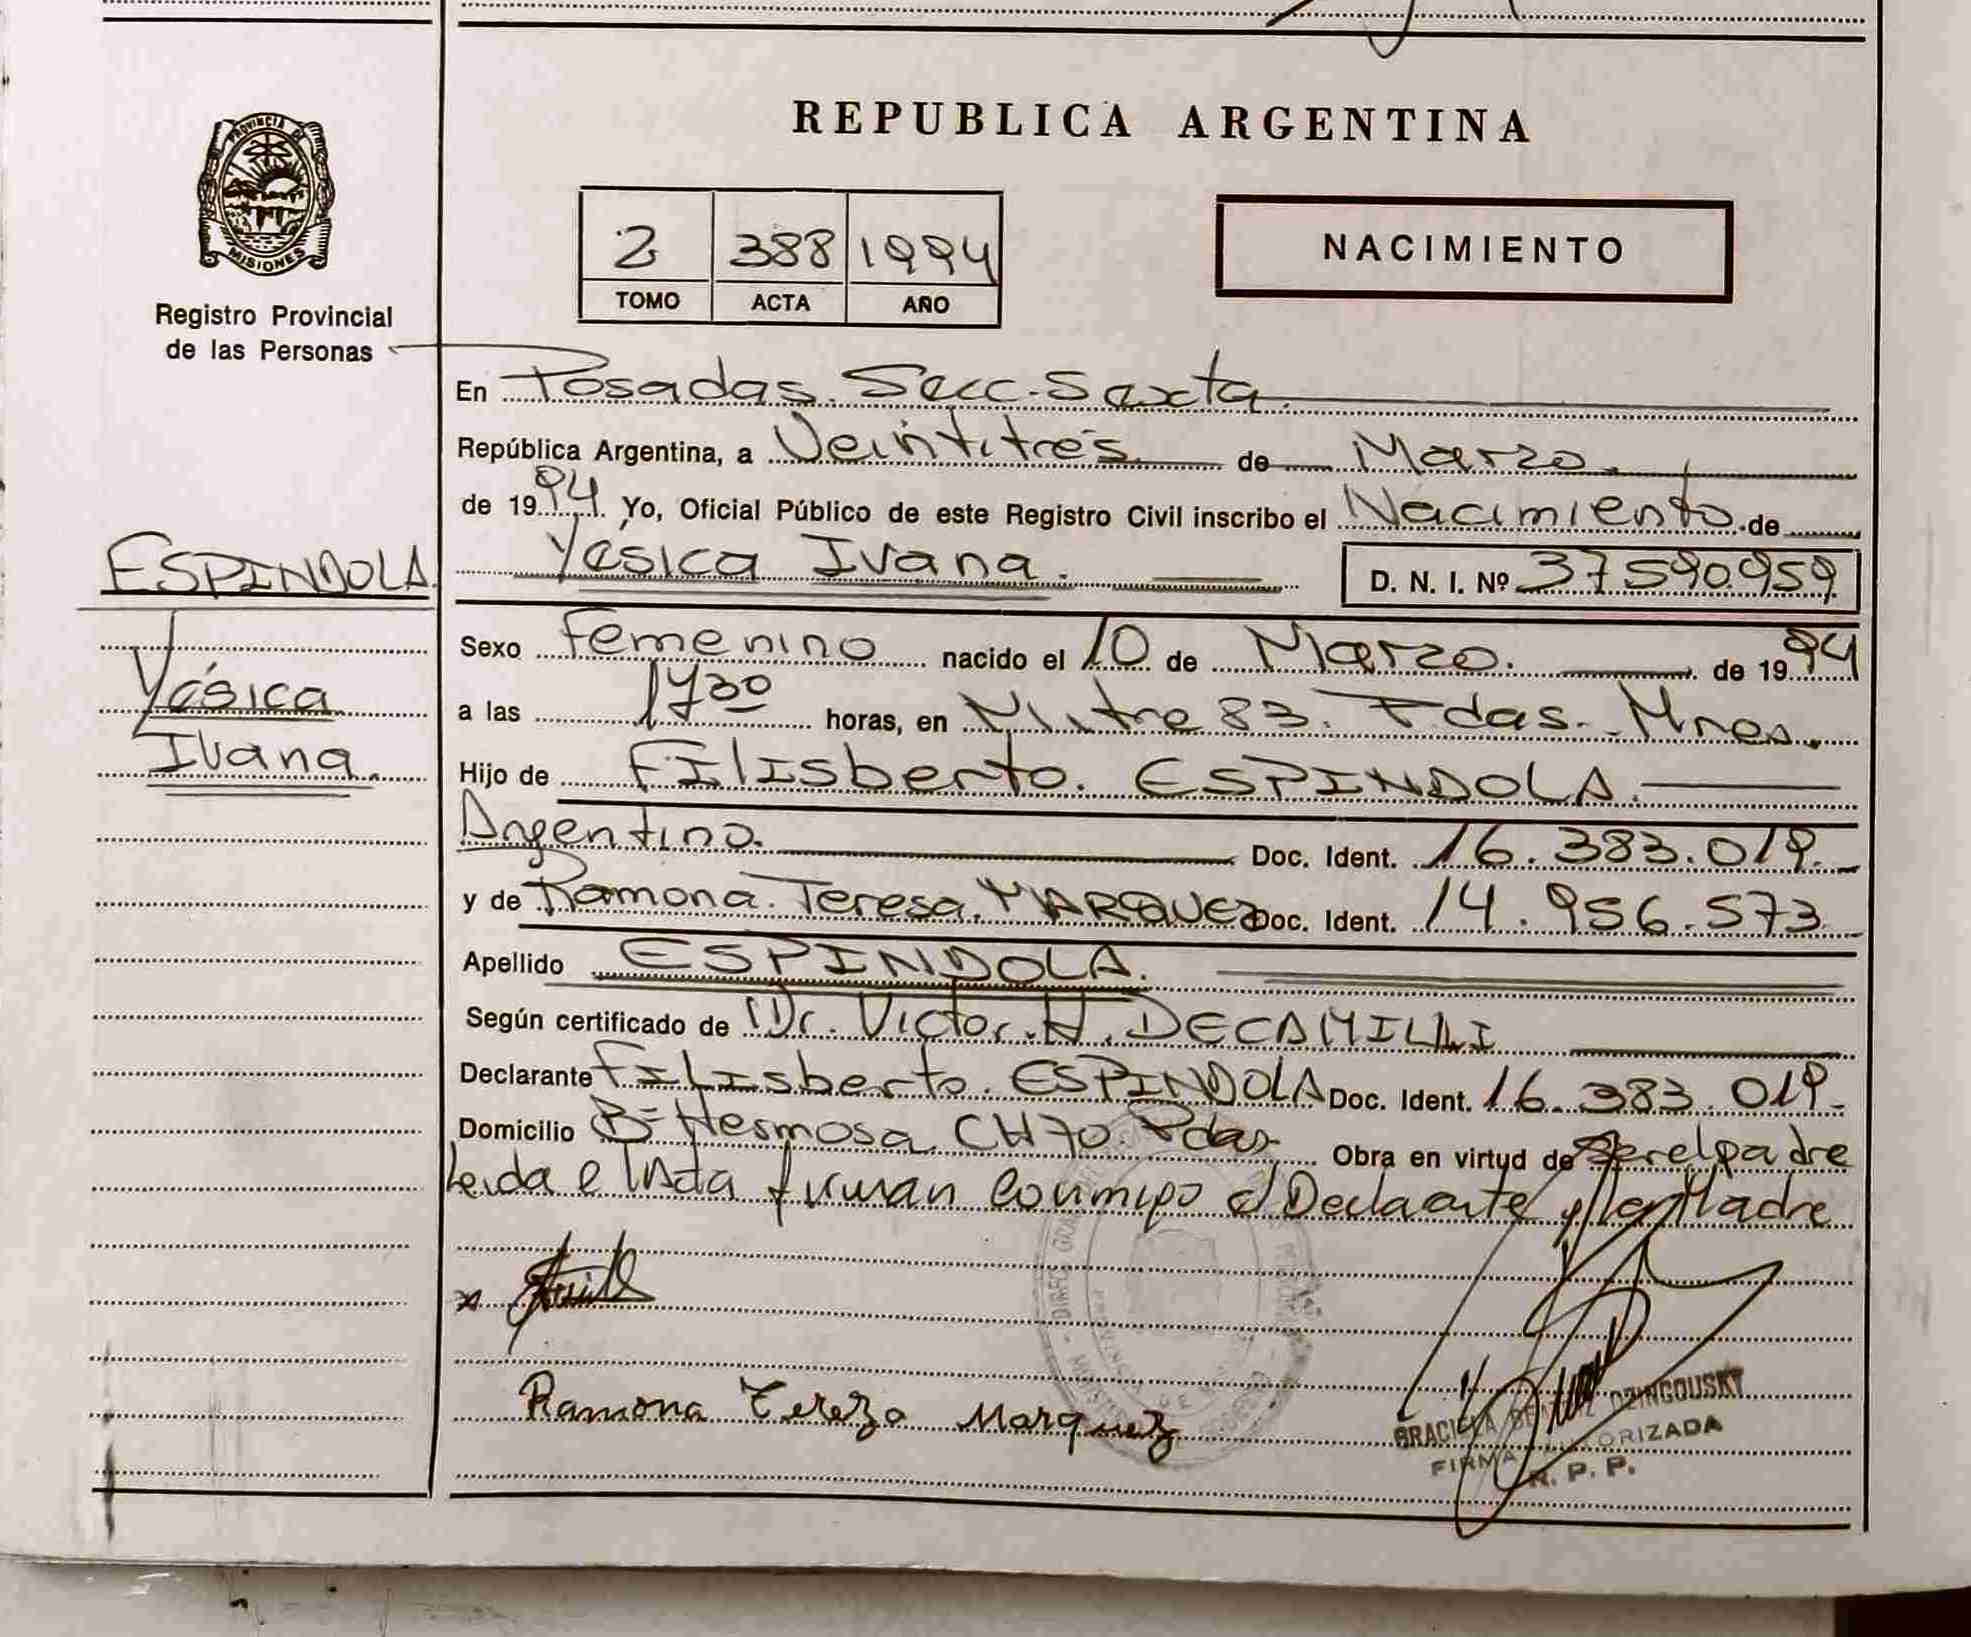 PROVINCIA DE
MISIONES
Registro Provincial
de las Personas
REPUBLICA ARGENTINA
2 388 1994
TOMO ACTA AÑO
NACIMIENTO
En Posadas. Secc. Sexta.
República Argentina, a Veintitrés de Marzo.
de 1994. Yo, Oficial Público de este Registro Civil inscribo el Nacimiento de
Yésica Ivana. D. N. I. Nº 37590.959
ESPINDOLA.
Yésica
Ivana.
Sexo Femenino nacido el 10 de Marzo. de 1994
a las horas, en Mitre 83. Pdas. Mnes.
Hijo de Filisberto. ESPINDOLA.
Argentino. Doc. Ident. 16.383.019.
y de Ramona. Teresa. MARQUEZ Doc. Ident. 14.956.573.
Apellido ESPINDOLA.
Según certificado de Dr. Victor. H. DECAMILLI
Declarante Filisberto. ESPINDOLA Doc. Ident. 16.383.019.
Domicilio Bº Hermosa CH70. Pdas. Obra en virtud de ser el padre
Leida e firman conmigo el Declarante y la Madre
Ramona Tereza Marquez
GRACIELA DZINGOUSKY
FIRMA AUTORIZADA
R. P. P.